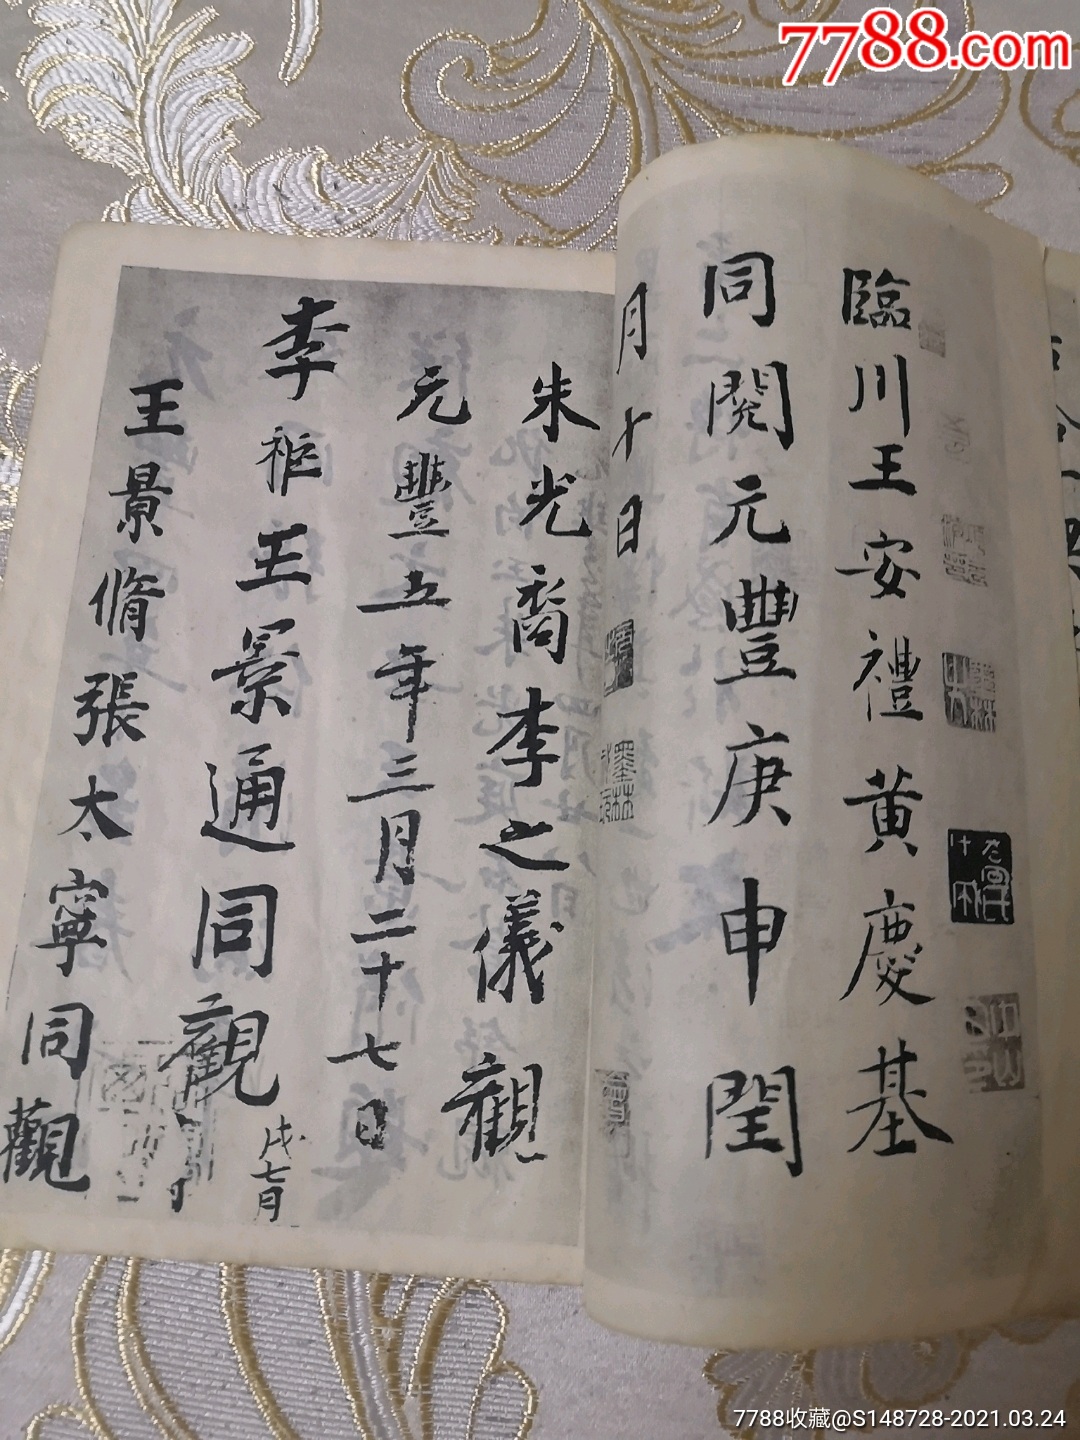 7788.com
臨川王安禮黄慶基
同閱元豐庚申閏
月十日
朱光裔李之儀觀
元豐五年三月二十七日
李秬王景通同觀
戌七月
王景脩張太寧同觀
墨林
7788收藏@S148728-2021.03.24